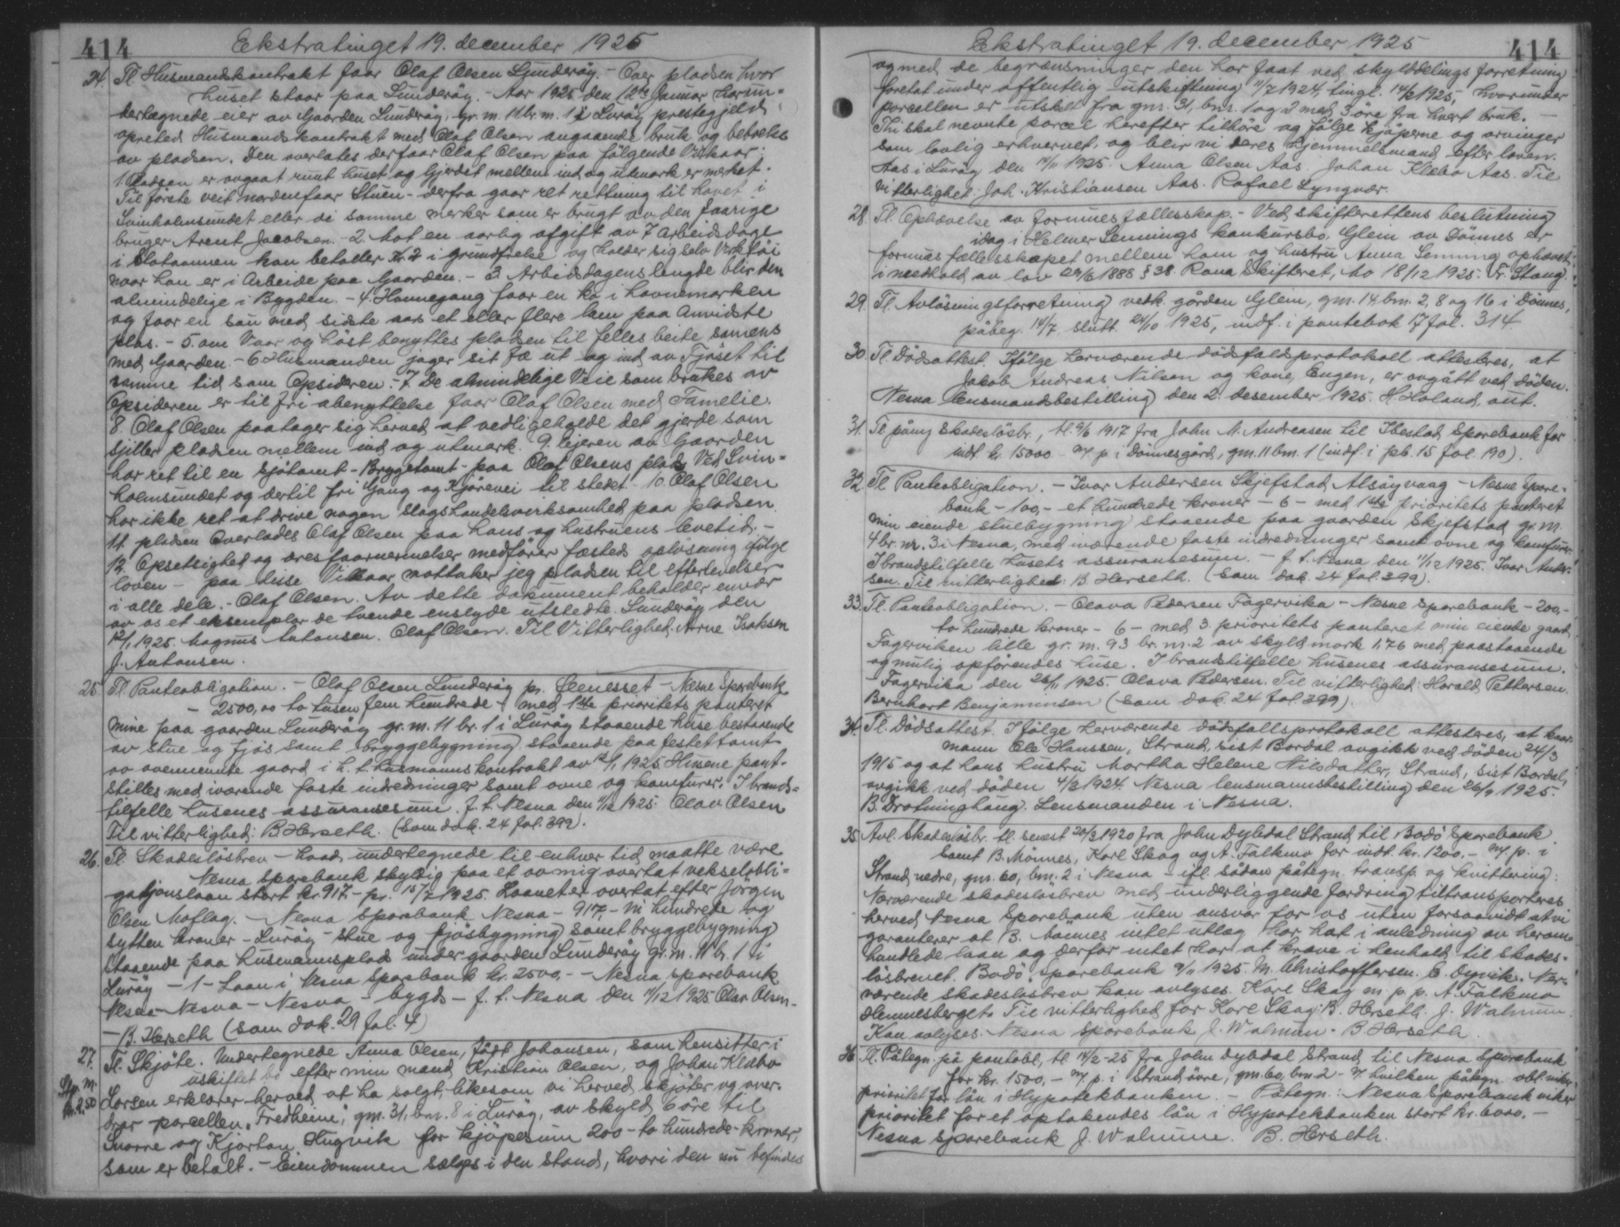 414
Ekstratinget 19. december 1925
24. Tl. Husmandskontrakt faar Olaf Olsen Lunderøy. - Over pladsen hvor
huset staar paa Lunderøy. - Aar 1925 den 12te Januar har un=
dertegnede eier av Gaarden Lunderøy. Gr. m. 11 br. m. 1 i Lurøy prestegjeld
oprettet Husmandskontrakt med Olaf Olsen angaaende bruk og beboelse
av pladsen. Den overlates derfaar Olaf Olsen paa følgende Vilkaar:
1. Pladsen er avgaat rundt huset og Gjerdet mellem ind og utmark er merket.
Til første veit nordenfaar Stuen - derfra gaar ret retning til havet i
Svinholmsundet eller de samme merker som er brugt av den faarige
bruger Arent Jacobsen. - 2. Mot en aarlig afgift av 7 Arbeidsdage
i Slotaannen han beholder Kr 2 i Grundfrelse og holder sig selv Verktøi
naar han er i Arbeide paa Gaarden. - 3. Arbeidsdagens lengde blir den
almindelige i Bygden. - 4. Havnegang faar en ko i havnemarken
og faar en sau med sidste aars et eller flere lam paa Anvidste
plas. - 5. om Vaar og høst benyttes pladsen til felles beite samens
med Gaarden - 6 Husmanden jager sit Fæ ut og ind av Fjøset til
samme tid som Opsideren. - 7 De almindelige Veie som brukes av
Opsideren er til fri abenyttelse faar Olaf Olsen med Familie.
8. Olaf Olsen paatager sig herved at vedligeholde det gjerde som
skiller pladsen mellem ind og utmark. 9. Eieren av Gaarden
har ret til en Sjøtomt - Bryggetomt - paa Olaf Olsens plads Ved Svin=
holmsundet og dertil fri Gang og Kjørevei til stedet. 10. Olaf Olsen
har ikke ret at drive nogen slags handelsverksomhed paa pladsen.
11. pladsen Overlades Olaf Olsen paa hans og hustruens levetid. -
12. Opsettighet og æres faarnærmelser medfører fæstets opløsning ifølge
loven - paa disse Vilkaar mottaker jeg pladsen til efterlevelser
i alle dele. - Olaf Olsen. Av dette dokument beholder enver
av os et eksemplar de tvende enslyde utstedte. Lunderøy den
12/1 1925 Magnus Antonsen. Olaf Olsen. Til Vitterlighed. Arne Isaksen
J. Antonsen.
25. Tl. Panteobligation. - Olaf Olsen Lunderøy pr. - Nesna Sparebank
- 2500,00 to tusen fem hundrede - med 1ste prioritets panteret
mine paa gaarden Lunderøy gr. m. 11 br. 1 i Lurøy staaende huse bestaaende
av stue og fjøs samt bryggebygning staaende paa festet tomt
av ovennevnte gaard i h. t. husmannskontrakt av 12/1 1925. Husene pant-
stilles med iværende faste inredninger samt ovne og komfurer. I brands=
tilfelle husenes assuransesum. f. t. Nesna den 11/12 1925. Olav Olsen
Til vitterlighed: B Herseth. (Som dok. 24 fol. 399).
26. Tl. Skadesløsbrev - hvad undertegnede til enhver tid maatte være
Nesna Sparebank skyldig paa et av mig overtat vekselobli=
gationslaan stort kr. 917 - pr. 15/7 1925. Laanet er overtat efter Jørgen
Olsen Moflag. - Nesna Sparebank Nesna - 917,- ni hundrede og
sytten kroner - Lurøy - stue og fjøsbygning samt bryggebygning
staaende paa husmannsplads under gaarden Lunderøy gr. m. 11 br. 1 i
Lurøy - 1 - Laan i Nesna Sparebank kr. 2500,- - Nesna Sparebank
Nesna - Nesna - Nesna - bygds - f. t. Nesna den 11/12 1925 Olav Olsen.
- B. Herseth (Som dok. 29 fol. 4)
27. Tl. Skjøte. Undertegnede Anna Olsen, født Johansen, som hensitter i
uskiftet bo efter min mand Kristian Olsen, og Johan Klæbo
Larsen erklærer herved, at ha solgt, likesom vi herved skjøter og over-
drar parcellen "Fredheim", gm. 31, bm. 8 i Lurøy, av skyld 6 øre til
Snorre og Kjartan Hugvik for kjøpesum 200 - to hundrede - kroner
som er betalt. - Eiendommen sælges i den stand, hvori den nu befindes
414
Ekstratinget 19. december 1925
og med de begrænsninger den har faat ved skylddelings forretning
foretat under offentlig utskiftning 11/7 1924 tingl. 14/2 1925, hvorunder
parcellen er utskilt fra gm. 31, bm. 1 og 2 med 3 øre fra hvert bruk. -
Thi skal nevnte parcel herefter tilhøre og følge kjøperne og arvinger
som lovlig erhvervet. og blir vi deres hjemmelsmænd efter loven.
Aas i Lurøy den 11/11 1925. Anna Olsen Aas. Johan Klæbo Aas. Til
Vitterlighet: Joh. Kristiansen Aas. Rafael Lyngvær.
28. Tl. Ophævelse av formues fællesskap. - Ved skifterettens beslutning
idag i Helmer Lennings konkursbo Glein av Dønnes er
formuesfællesskapet mellem ham og hustru Anna Lenning ophævet
i medhold av lov 29/6 1888 § 38. Rana Skifteret, Mo 18/12 1925. Fr. Stang.
29. Tl. Avløsningsforretning vedk. gården Glein, gm. 14, bm. 2, 8 og 16 i Dønnes,
påbeg. 14/7 slutt 24/10 1925, indf. i pantebok 17 fol. 314
30. Tl. Dødsattest. Ifølge herværende dødsfaldsprotokoll attesteres, at
Jakob Andreas Nilsen og kone, Eugen, er avgått ved døden.
Nesna Lensmandsbestilling den 2. desember 1925. H. Høland aut.
31. Tl påny skadesløsbr., tl. 9/6 1917 fra John M. Andreasen til Ibestad Sparebank for
indt. kr. 15000 m/p. i Dønnesgård, gm. 11 bm. 1 (indf. i pb. 15 fol. 190).
32. Tl Panteobligation. - Ivar Andersen Skjefstad Alsøyvaag - Nesna Spare-
bank - 100,- et hundrede kroner - 6 - med 1ste prioritets panteret
min eiende stuebygning staaende paa gaarden Skjefstad gr. m.
4 br. nr. 3 i Nesna, med iværende faste indredninger samt ovne og komfurer.
I brandstilfelle husets assuransesum. - f. t. Nesna den 11/12 1925. Ivar Ander-
sen. Til vitterlighed: B Herseth. (Som dok. 24 fol. 399).
33. Tl. Panteobligation. - Olava Pedersen Fagervika - Nesna Sparebank - 200,-
to hundrede kroner - 6 - med 3. prioritets panteret min eiende gaard
Fagerviken lille gr. m. 93 br. m. 2 av skyld mark 1,76 med paastaaende
og mulig opførendes huse. I brandstilfelle husenes assuransesum.
Fagervika den 26/11 1925. Olava Pedersen. Til vitterlighed: Harald Pettersen.
Bernhart Benjaminsen (Som dok. 24 fol 399).
34. Tl. Dødsattest. Ifølge herværende dødsfallsprotokoll attesteres, at kaar-
mann Ole Hanssen, Strand, sist Bardal avgikk ved døden 24/3
1915 og at hans hustru Martha Helene Nilsdatter, Strand, sist Bardal,
avgikk ved døden 4/2 1924. Nesna lensmannsbestilling den 26/9 1925.
B. Drotninghaug. Lensmanden i Nesna.
35. Avl. Skadesløsbr. tl. senest 20/3 1920 fra John Dybdal Strand til Bodø Sparebank
samt B. Mønnes, Karl Skog og A. Falkmo for indt. kr. 1200.- m/p. i
Strand nedre, gm. 60, bm. 2 i Nesna - ifl. sådan påtegn. transp. og kvittering:
Nærværende skadesløsbrev med underliggende fordring tiltransporteres
herved Nesna Sparebank uten ansvar for os uten forsaavidt at vi
garanterer at B. Mønnes intet utlæg har hat i anledning av heromm-
handlede laan og derfor intet har at kræve i henhold til skades-
løsbrevet. Bodø Sparebank 9/11 1925. M. Christoffersen. E. Gyvik. Nær-
værende skadesløsbrev kan avlyses. Karl Skog m. p. p. A. Falkmo
Hemnesberget. Til vitterlighed for Karl Skog: B. Herseth. J. Walnum.
Kan avlyses. Nesna Sparebank J. Walnum. B Herseth.
36 Tl. Påtegn. på pantobl., tl. 14/2-25 fra John Dybdal Strand til Nesna Sparebank
for kr. 1500,- m/p. i Strand øvre, gm. 60, bm. 2 - v/ hvilken påtegn obl. viker
prioritet for lån i Hypotekbanken. - Påtegn: Nesna Sparebank viker
prioritet for et optakendes lån i Hypotekbanken stort kr. 6000.-
Nesna Sparebank J. Walnum. B. Herseth.